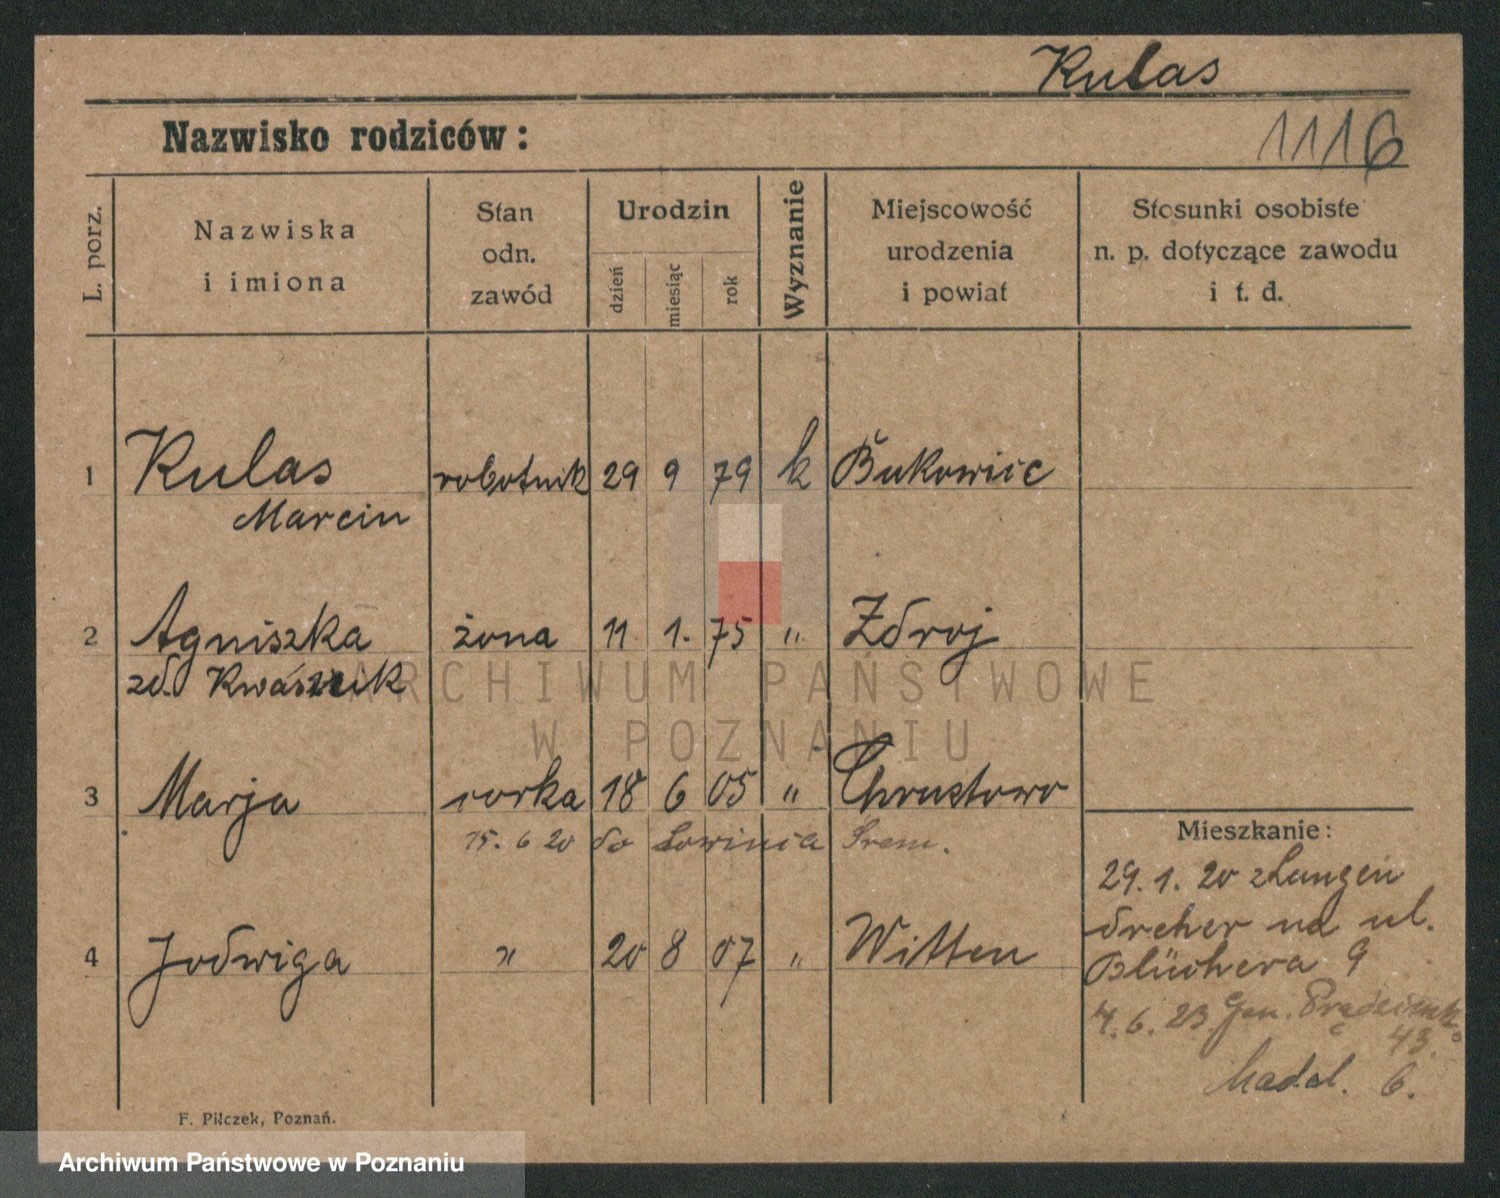 Kulas
Nazwisko rodziców:
1116
L. porz.
Nazwiska
i imiona
Stan
odn.
zawód
Urodzin
dzień
miesiąc
rok
Wyznanie
Miejscowość
urodzenia
i powiat
Stosunki osobiste
n. p. dotyczące zawodu
i t. d.
1 Kulas robotnik 29 9 79 k Bukowiec
Marcin
2 Agniszka żona 11 1. 75 " Zdroj
zd. Kwaśnik
3 Marja corka 18 6 05 " Chrustowo
15. 6 20 do Lowinia Srem.
4 Jadwiga " 20 8 07 " Witten
Mieszkanie:
29. 1. 20 z Langen
dreher na ul.
Blüchera 9
4. 6. 23. Gen. Prądzińsk
43.
Madal. 6.
F. Pilczek, Poznań.
ARCHIWUM PAŃSTWOWE
W POZNANIU
Archiwum Państwowe w Poznaniu